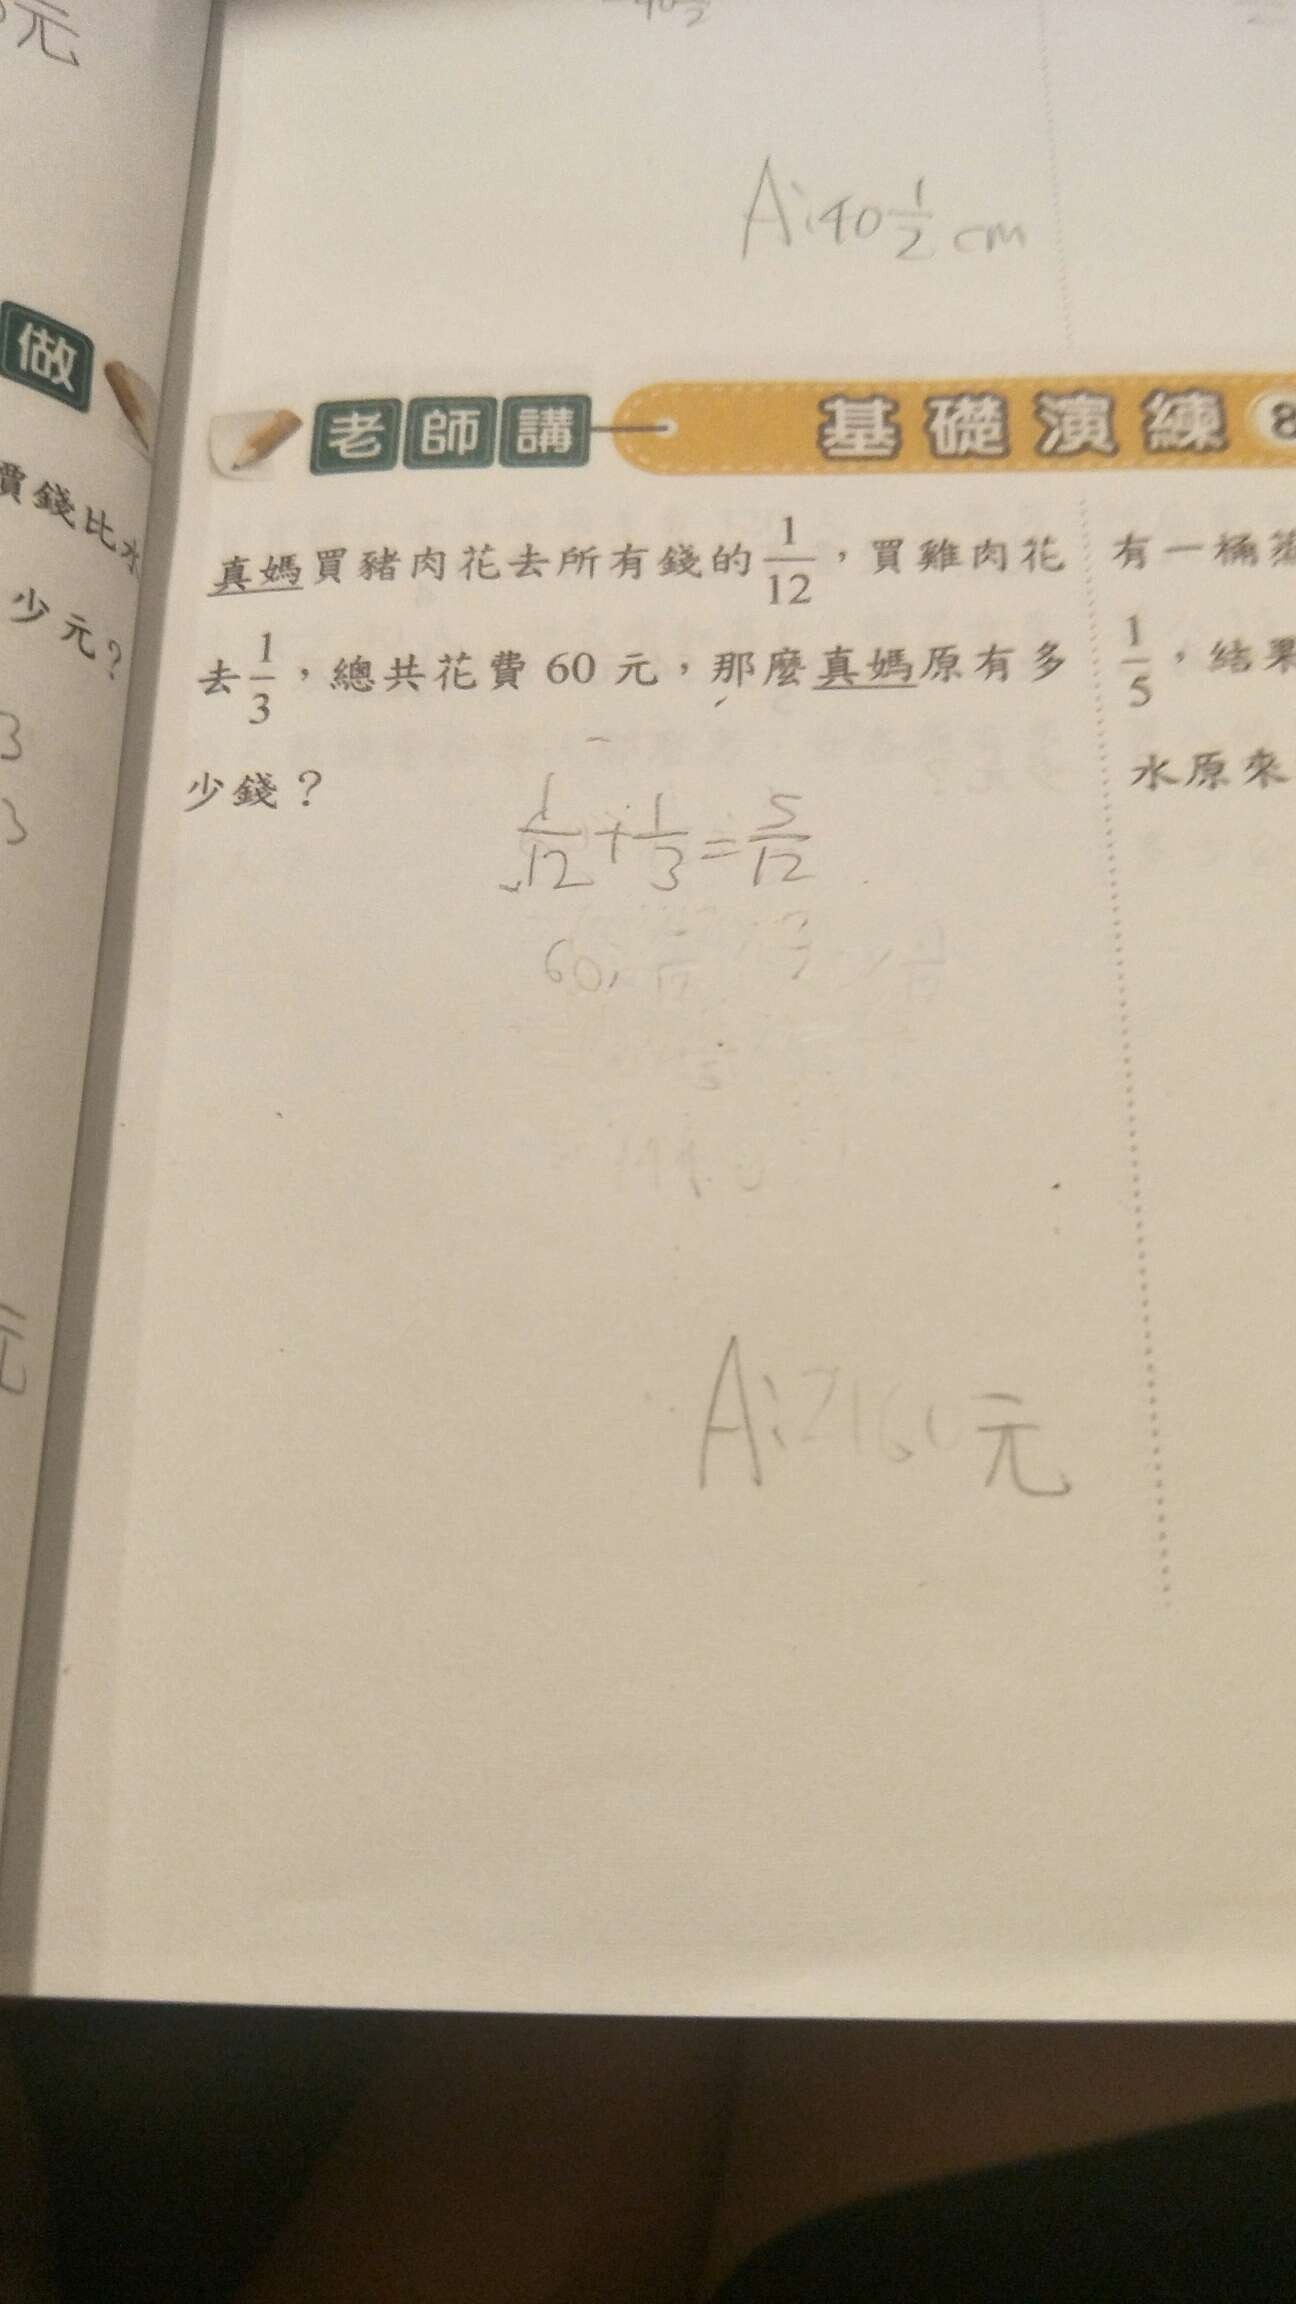 元
A:40 1/2 cm
做
老師講 基礎演練 8
買錢比水
少元?
真媽買豬肉花去所有錢的 1/12,買雞肉花
去 1/3,總共花費 60 元,那麼真媽原有多
少錢?
有一桶
1/5,結果
水原來
3
3
1/12 + 1/3 = 5/12
60
元
A: 元